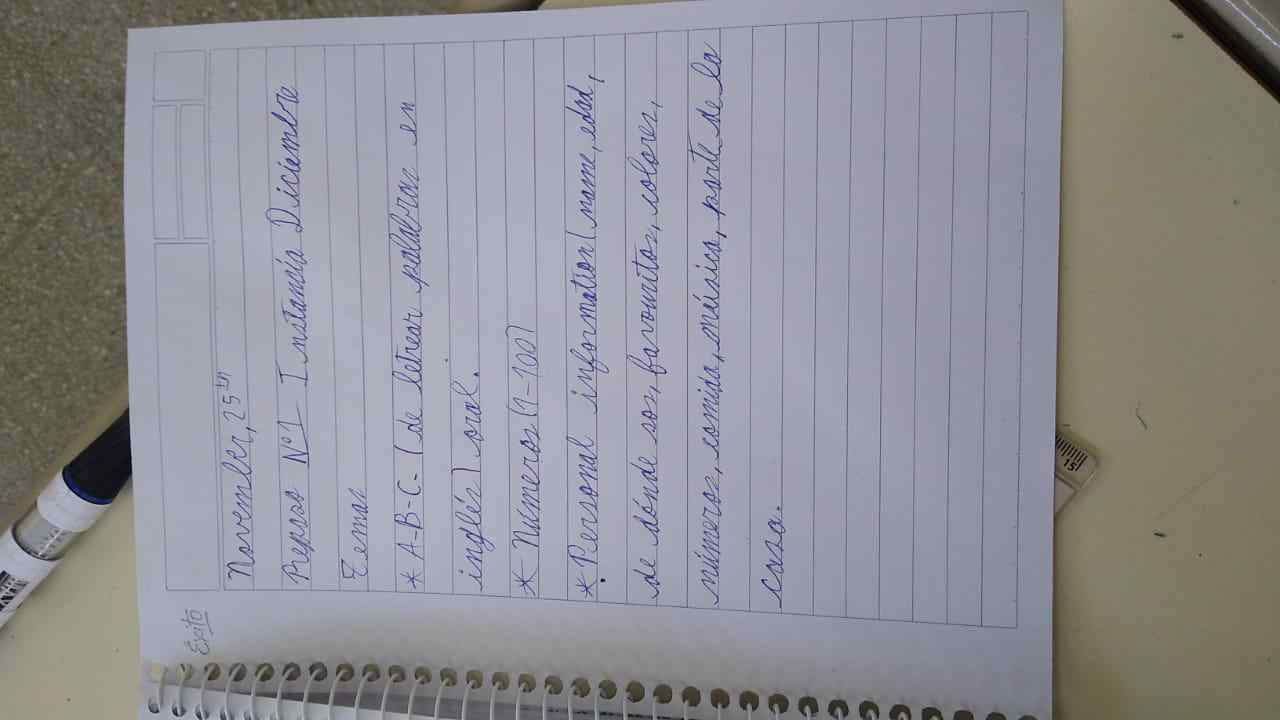 November, 25th
Repaso N°1 Instancia Diciembre
Temas
* A-B-C- (de letrear palabras en
inglés) oral.
* Números (1-100)
* Personal information (name, edad,
de dónde sos, favouritos, colores,
números, comida, música, parte de la
casa.
Éxito
15